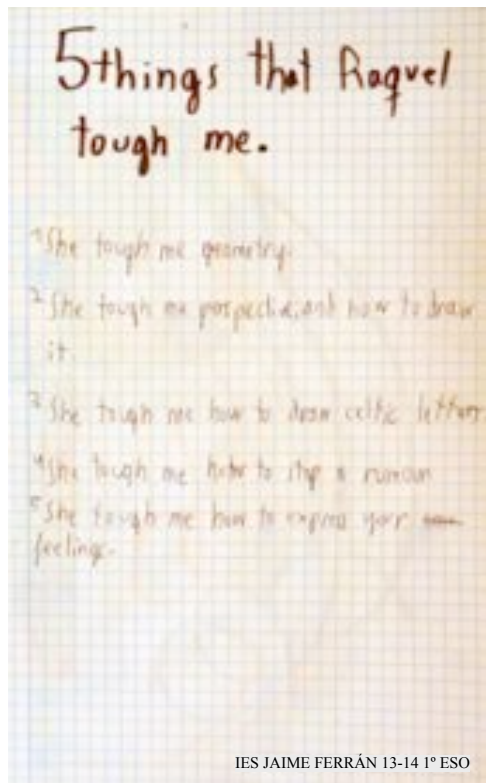 5 things that Raquel
tough me.
1 She tough me geometry.
2 She tough me perpective, and how to draw
it.
3 She tough me how to draw celtic letters
4 She tough me how to stop a rumour
5 She tough me how to express your
feelings.
IES JAIME FERRÁN 13-14 1º ESO